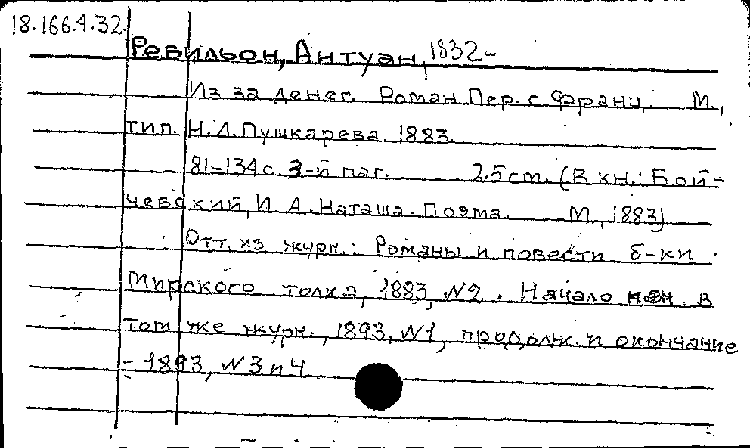 18.166.4.32.
Ревильон, Антуан, 1832-
Из за денег. Роман Пер. с франц. М.,
тип. Н.Л.Пушкарева 1883.
81-134с. 3-й паг. 25см. (В кн.: Бой-
чевский, И.А. Наташа. Поэма. М., 1883)
Отт. из журн.: Романы и повести б-ки
Мирского толка, 1883, №2. Начало в
том же журн., 1893, №1, продолж. и окончание
- 1893, №3 и 4